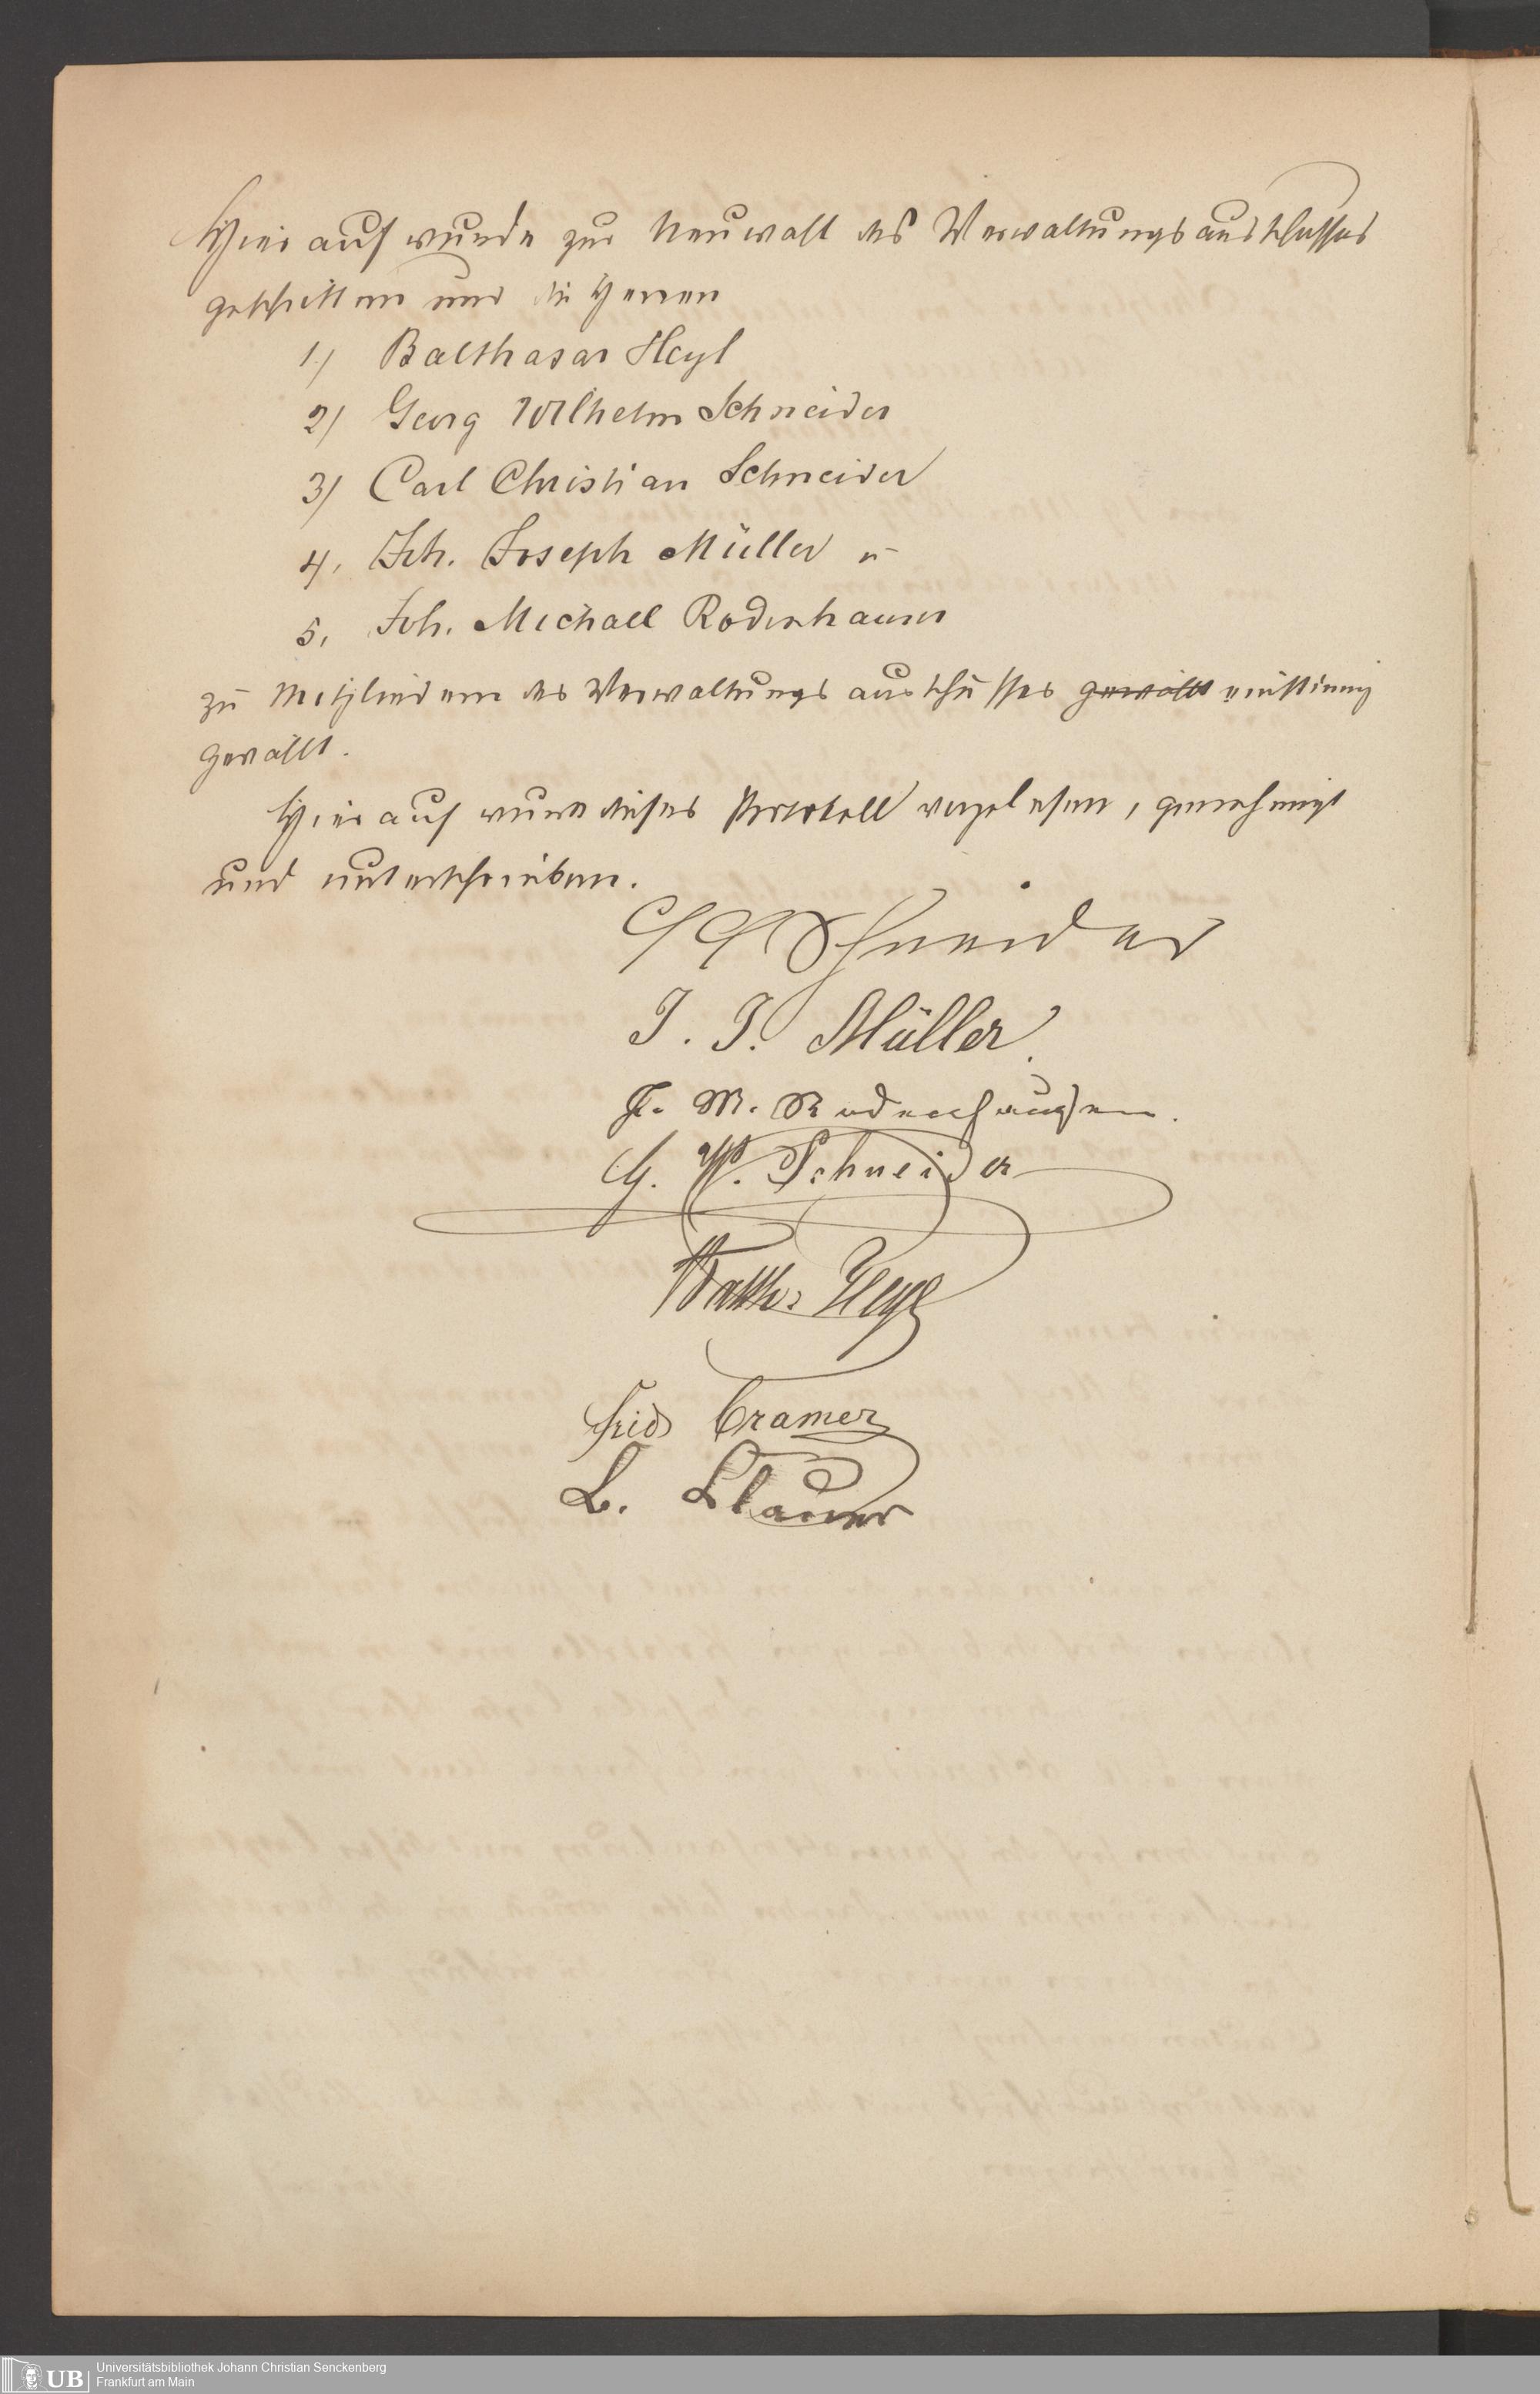 Hierauf wurde zur Neuwahl des Verwaltungsausschusses
geschritten und die Herren
1) Balthasar Heyl
2) Georg Wilhelm Schneider
3) Carl Christian Schneider
4. Joh. Joseph Müller u
5. Joh. Michael Rodenhausen
zu Mitgliedern des Verwaltungsausschusses gewählt einstimmig
gewählt.
Hierauf wurde dieses Protokoll vorgelesen, genehmigt
und unterschrieben.
C C Schneider
J. J. Müller.
J. M. Rodenhausen.
G. W. Schneider
Balth. Heyl
Frid Cramer
L. Clauer
UB
Universitätsbibliothek Johann Christian Senckenberg
Frankfurt am Main